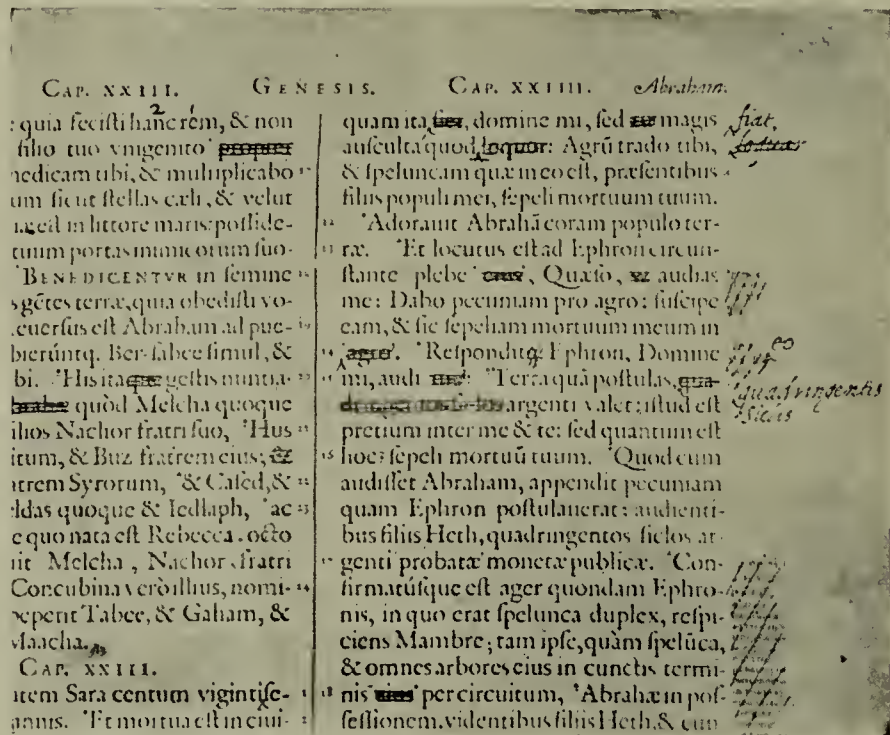 CAP. XXIII. GENESIS. CAP. XXIIII. Abraham.
: quia fecisti hanc rém, & non
filio tuo vnigenito propter
nedicam tibi, & multiplicabo
um sicut stellas cæli, & velut
in littore maris: posside-
tuum portas inimicorum suo-
BENEDICENTVR in semine
s gẽtes terræ, quia obedisti vo-
euersus est Abraham ad pue-
bierúntq. Ber-sabee simul, &
bi. His itaque gestis nuntia-
quòd Melcha quoque
ilios Nachor fratri suo, Hus
itum, & Buz fratrem eius; &
atrem Syrorum, & Cased, &
ldas quoque & Iedlaph, ac
e quo nata est Rebecca. octo
it Melcha, Nachor fratri
Concubina verò illius, nomi-
peperit Tabee, & Gaham, &
Maacha.
CAP. XXIII.
utem Sara centum viginti se-
annis. Et mortua est in ciui-
quam ita fiet, domine mi, sed magis fiat,
ausculta quod loquor: Agrũ trado tibi,
& speluncam quæ in eo est, præsentibus
filiis populi mei, sepeli mortuum tuum.
Adorauit Abrahã coram populo ter-
ræ. Et locutus est ad Ephron circun-
stante plebe, Quæso, vt audias
me: Dabo pecuniam pro agro: suscipe
eam, & sic sepeliam mortuum meum in
agro. Respondítq; Ephron, Domine eo
mi, audi Terra quã postulas, qua- quadringentis
argenti valet; istud est siclis
pretium inter me & te: sed quantum est
hoc? sepeli mortuũ tuum. Quod cum
audisset Abraham, appendit pecuniam
quam Ephron postulauerat: audienti-
bus filiis Heth, quadringentos siclos ar-
genti probatæ monetæ publicæ. Con-
firmatúsque est ager quondam Ephro-
nis, in quo erat spelunca duplex, respi-
ciens Mambre; tam ipse, quàm spelũca,
& omnes arbores eius in cunctis termi-
nis eius per circuitum, Abrahæ in pos-
sessionem, videntibus filiis Heth, & cun